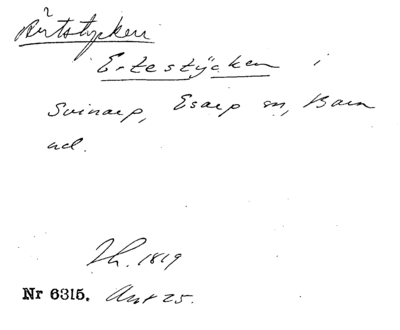 Ärtstycken
Ertestÿcken i
Svinarp, Esarp sn, Bara
hd.
Th. 1819
Nr 6315. Ant 25.